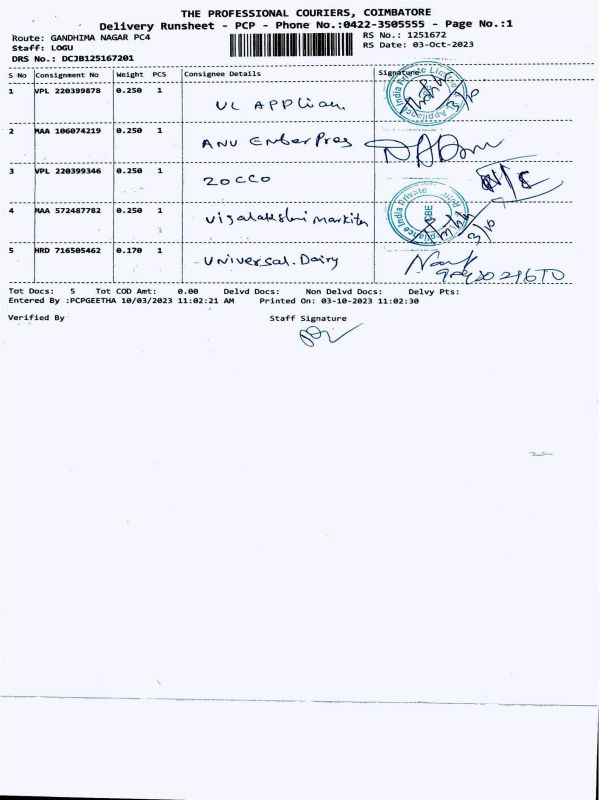 THE PROFESSIONAL COURIERS, COIMBATORE
Delivery Runsheet - PCP - Phone No.:0422-3505555 - Page No.:1
Route: GANDHIMA NAGAR PC4 RS No.: 1251672
Staff: LOGU RS Date: 03-Oct-2023
DRS No.: DCJB125167201
S No Consignment No Weight PCS Consignee Details Signature
1 VPL 220399878 0.250 1 UL APPlian. 3/10
2 MAA 106074219 0.250 1 ANU EnterPres
3 VPL 220399346 0.250 1 ZOCCO
4 MAA 572487782 0.250 1 Visalakshmi Markitn 3/10
5 HRD 716505462 0.170 1 Universal. Dairy
Tot Docs: 5 Tot COD Amt: 0.00 Delvd Docs: Non Delvd Docs: Delvy Pts:
Entered By :PCPGEETHA 10/03/2023 11:02:21 AM Printed On: 03-10-2023 11:02:30
Verified By Staff Signature